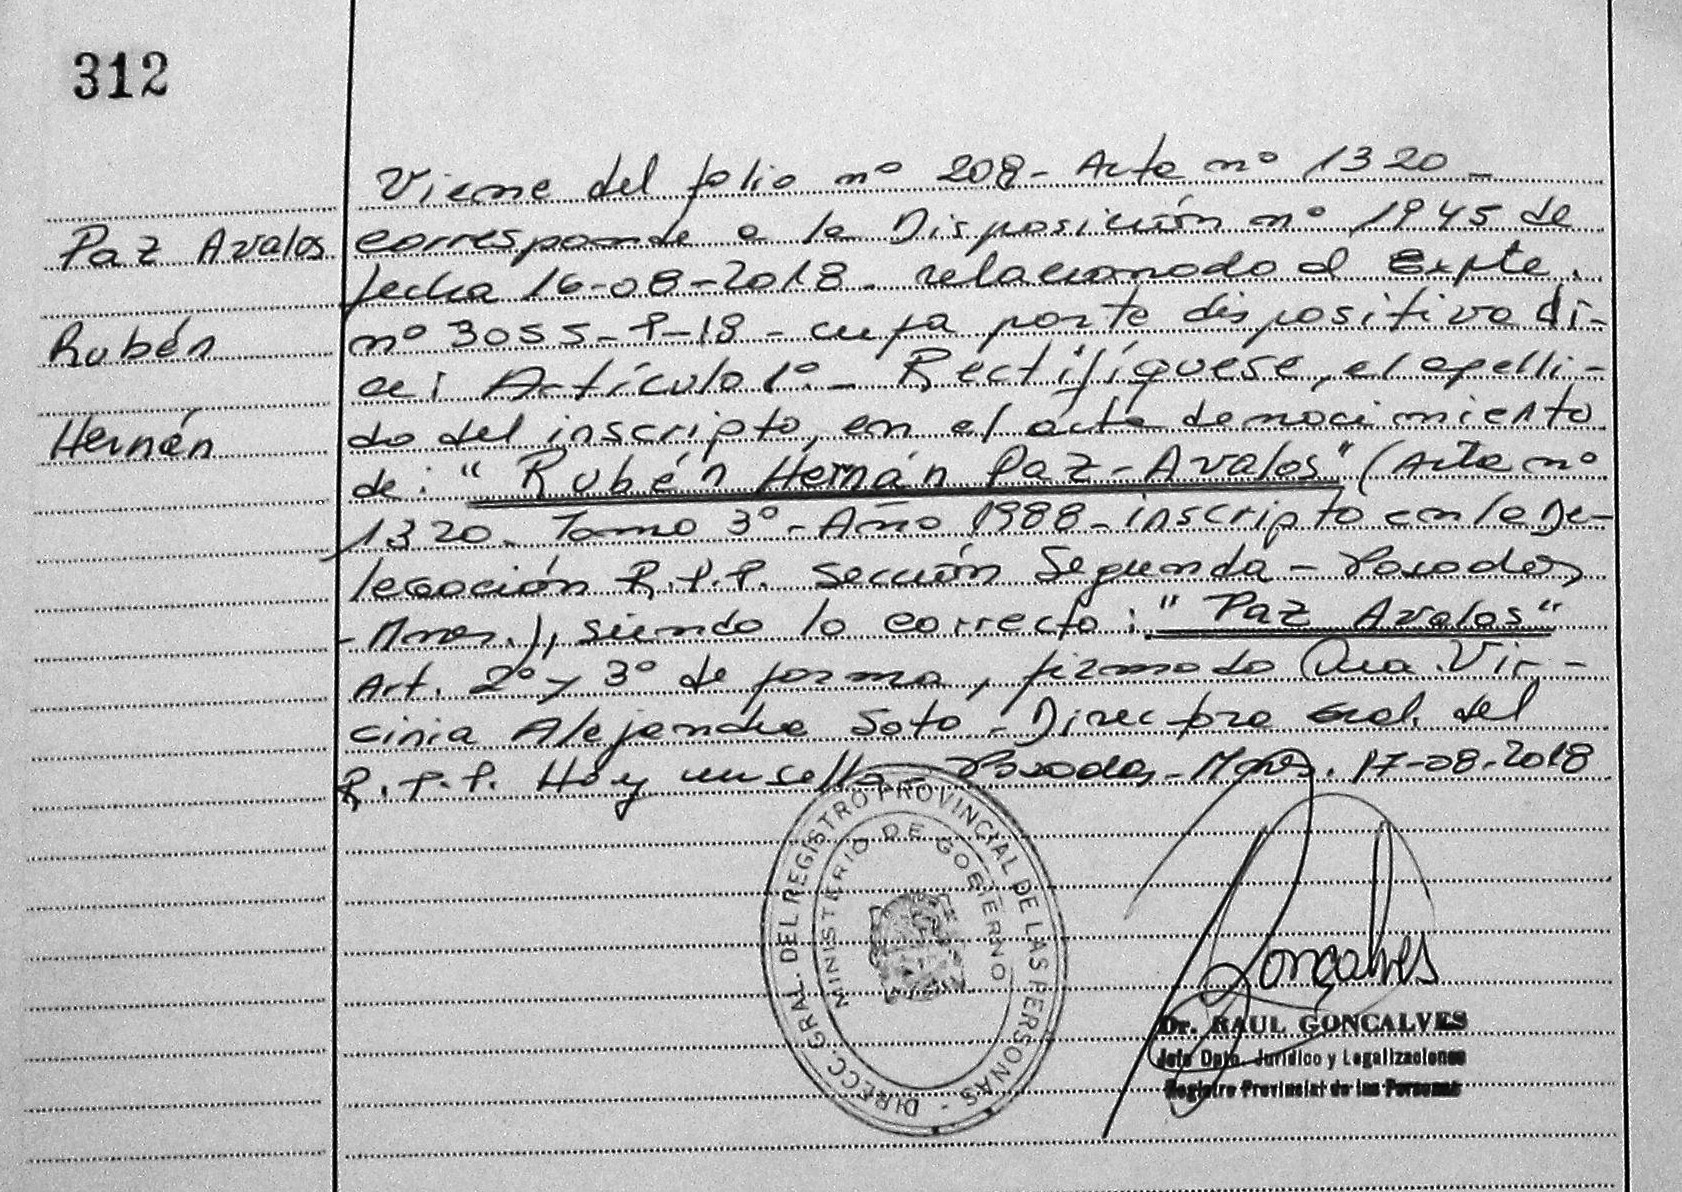 312
Viene del folio nº 208 - Acta nº 1320 -
Paz Avalos
corresponde a la Disposición nº 1945 de
fecha 16-08-2018 - relacionado al Expte.
Rubén
nº 3055 - P-18 - cuya parte dispositiva di-
ce: Artículo 1º - Rectifíquese, el apelli-
Hernán
do del inscripto, en el acta de nacimiento
de: "Rubén Hernán Paz-Avalos" (Acta nº
1320 - Tomo 3º - Año 1988 - inscripto en la De-
legación R.P.P. Sección Segunda - Posadas
- Mnes.), siendo lo correcto: "Paz Avalos"
Art. 2º y 3º de forma, firmado Dra. Vir-
ginia Alejandra Soto - Directora Gral. del
R.P.P. Hay un sello - Posadas - Mnes. 17-08-2018
DIRECC. GRAL. DEL REGISTRO PROVINCIAL DE LAS PERSONAS -
MINISTERIO DE GOBIERNO
Gonçalves
Dr. RAUL GONCALVES
Jefe Dpto. Jurídico y Legalizaciones
Registro Provincial de las Personas